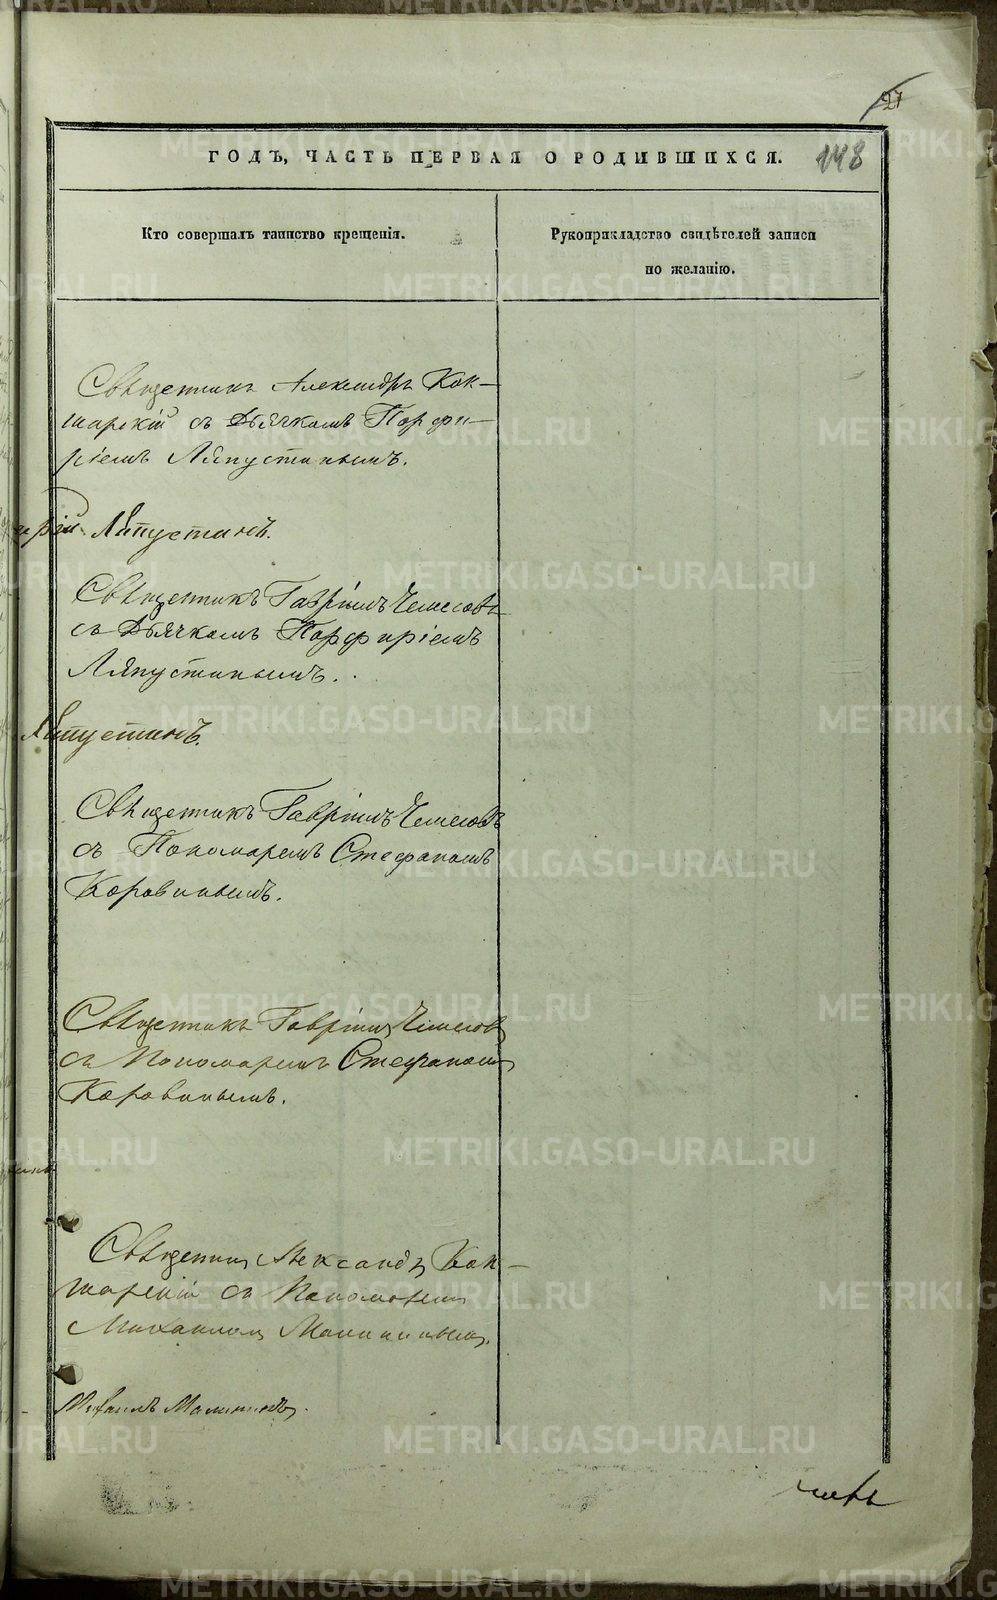 27
ГОДЪ, ЧАСТЬ ПЕРВАЯ О РОДИВШИХСЯ.
148
Кто совершалъ таинство крещенія.
Рукоприкладство свидѣтелей записи
по желанію.
Священникъ Александръ Кок-
шарскій съ Дьячкомъ Порфи-
ріемъ Ляпустинымъ.
Ляпустинъ.
Священникъ Гавріилъ
съ Дьячкомъ Порфиріемъ
Ляпустинымъ.
Ляпустинъ.
Священникъ Гавріилъ
съ Пономаремъ Стефаномъ
Коровинымъ.
Священникъ Гавріилъ
съ Пономаремъ Стефаномъ
Коровинымъ.
Священникъ Александръ Кок-
шарскій съ Пономаремъ
Михаиломъ Малининымъ.
Михаилъ Малининъ.
METRIKI.GASO-URAL.RU